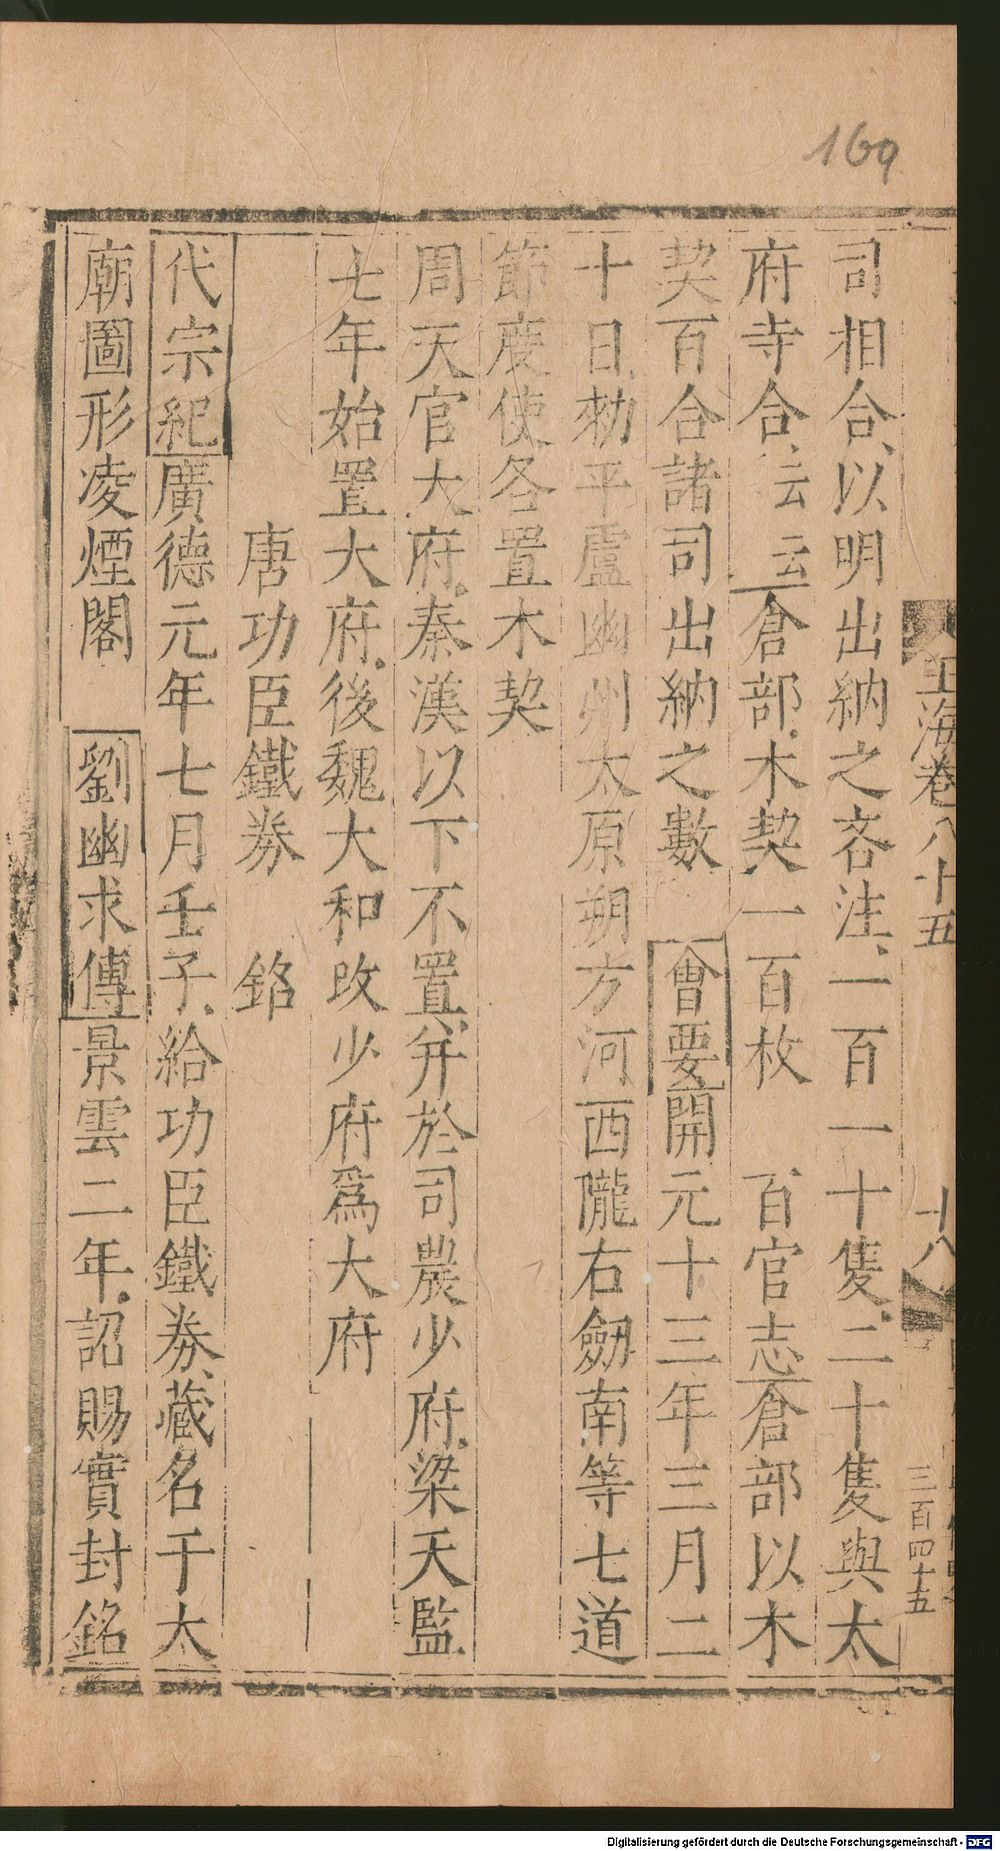 169
玉海卷八十五
十八
三百四十五
司相合以明出納之吝注一百一十隻二十隻與太
府寺合云云倉部木契一百枚　百官志倉部以木
契百合諸司出納之數　會要開元十三年三月二
十日勑平盧幽州太原朔方河西隴右劒南等七道
節度使各置木契
周天官大府秦漢以下不置并於司農少府梁天監
七年始置大府後魏大和改少府爲大府
唐功臣鐵券　銘
代宗紀廣德元年七月壬子給功臣鐵券藏名于太
廟圖形凌煙閣　劉幽求傳景雲二年詔賜實封銘
Digitalisierung gefördert durch die Deutsche Forschungsgemeinschaft - DFG